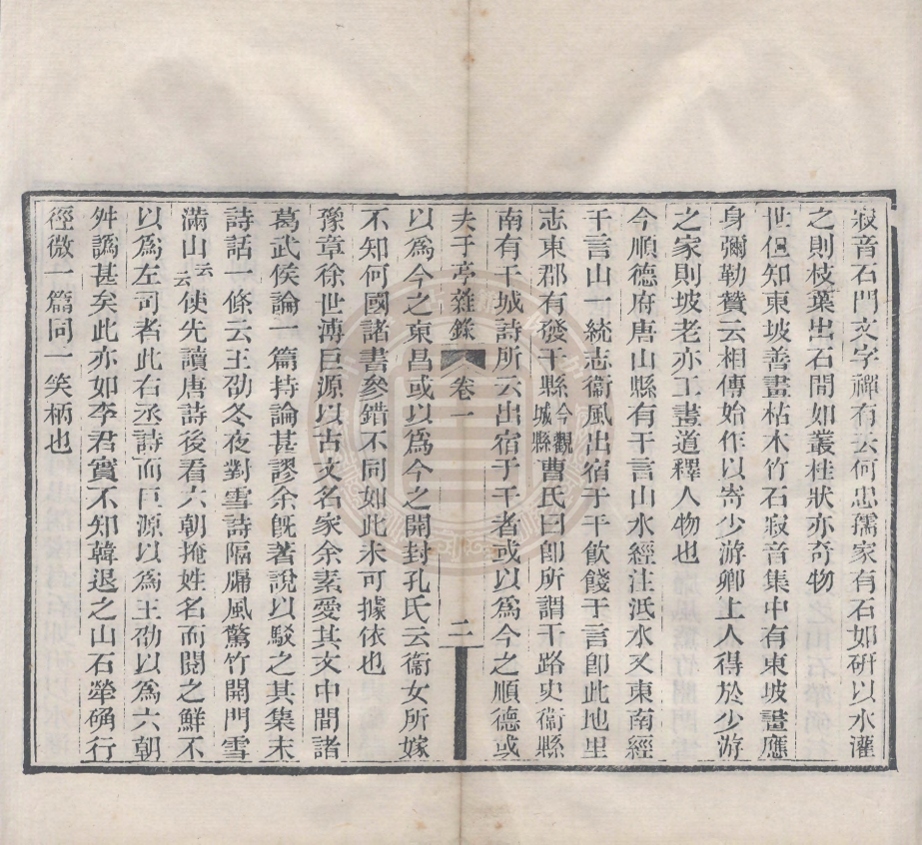 寂音石門文字禪有云何忠孺家有石如硏以水灌
之則枝葉出石間如叢桂狀亦奇物
世但知東坡善畫枯木竹石寂音集中有東坡畫應
身彌勒贊云相傳始作以寄少游卿上人得於少游
之家則坡老亦工畫道釋人物也
今順德府唐山縣有干言山水經注泜水又東南經
干言山一統志衞風出宿于干飮餞于言卽此地里
志東郡有發干縣今觀城縣曹氏曰卽所謂干路史衞縣
南有干城詩所云出宿于干者或以爲今之順德或
夫于亭雜錄 卷一 二
以爲今之東昌或以爲今之開封孔氏云衞女所嫁
不知何國諸書參錯不同如此未可據依也
豫章徐世溥巨源以古文名家余素愛其文中間諸
葛武侯論一篇持論甚謬余旣著說以駁之其集末
詩話一條云王劭冬夜對雪詩隔牖風驚竹開門雪
滿山云云使先讀唐詩後看六朝掩姓名而閱之鮮不
以爲左司者此右丞詩而巨源以爲王劭以爲六朝
舛譌甚矣此亦如李君實不知韓退之山石犖确行
徑微一篇同一笑柄也